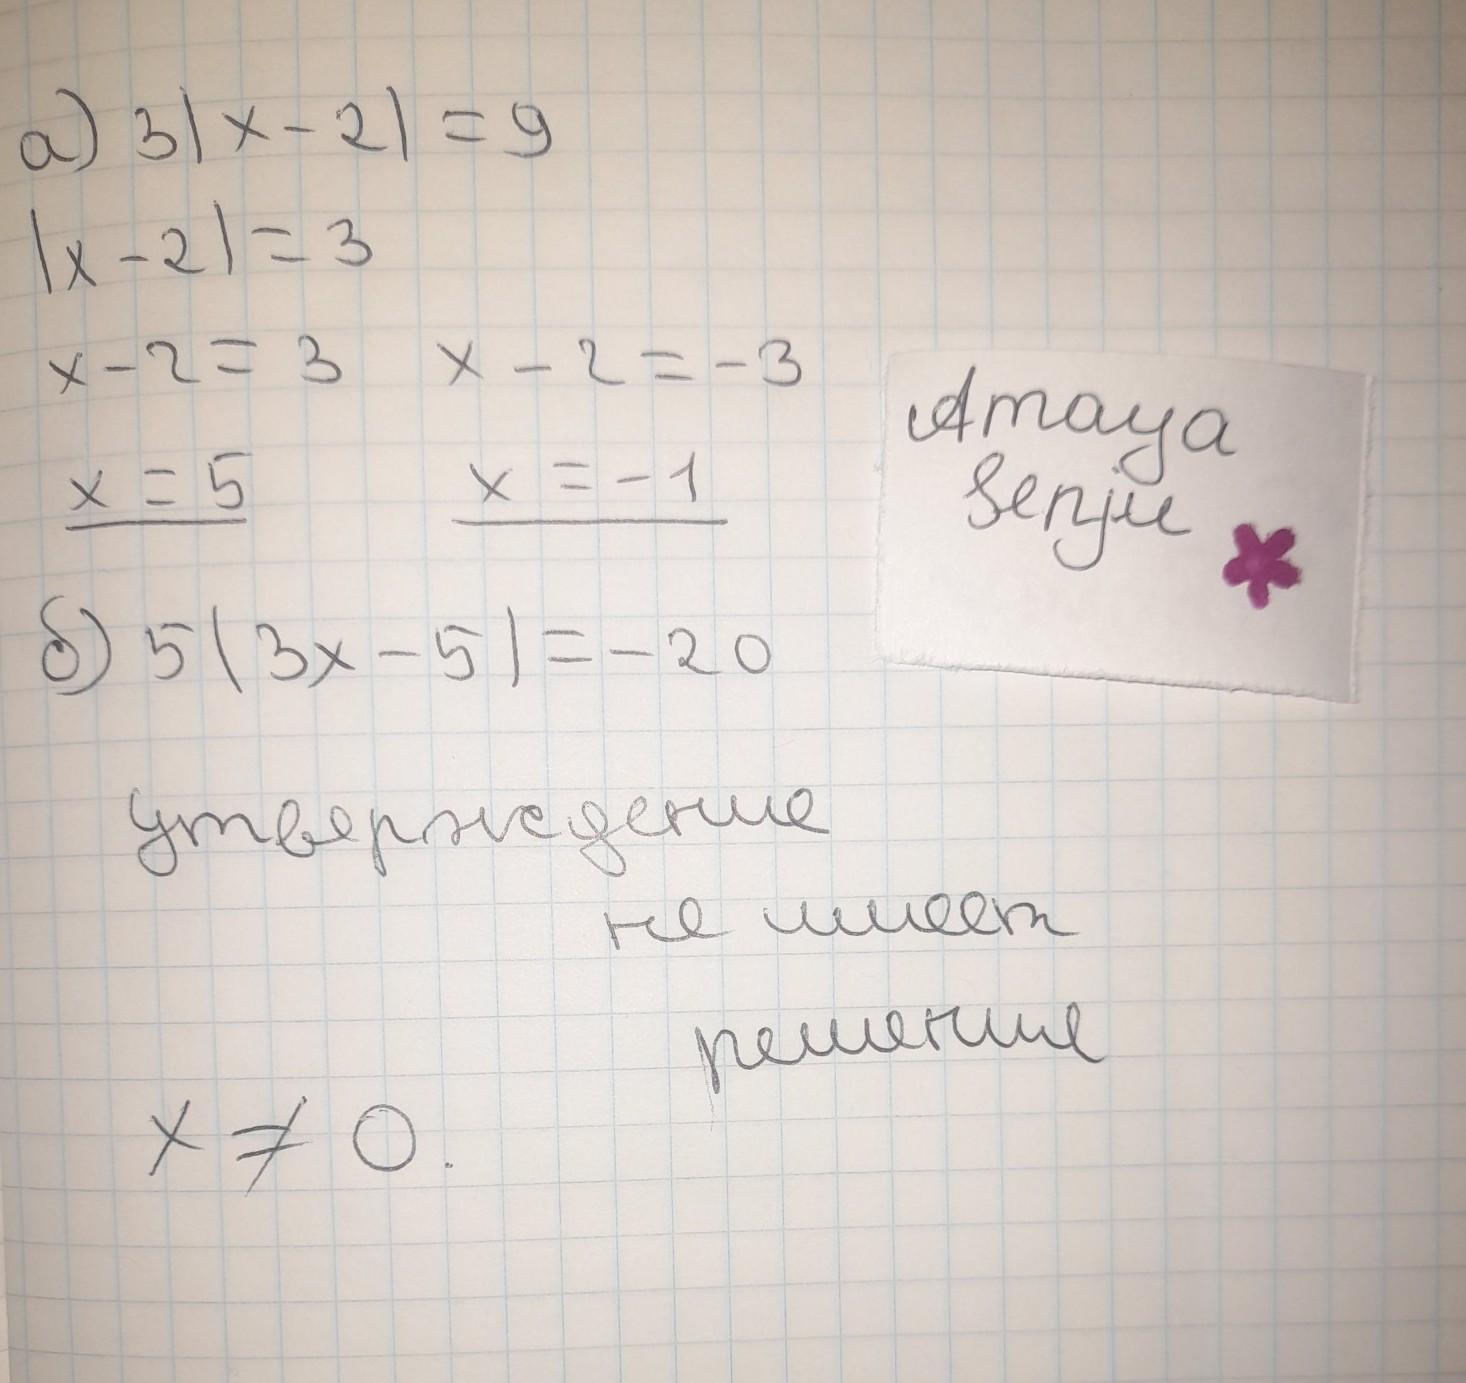 а) 3|x-2| = 9
|x-2| = 3
x-2 = 3 x-2 = -3
x = 5 x = -1
Amaya
Senju
б) 5|3x-5| = -20
утверждение
не имеет
решение
x ≠ 0.